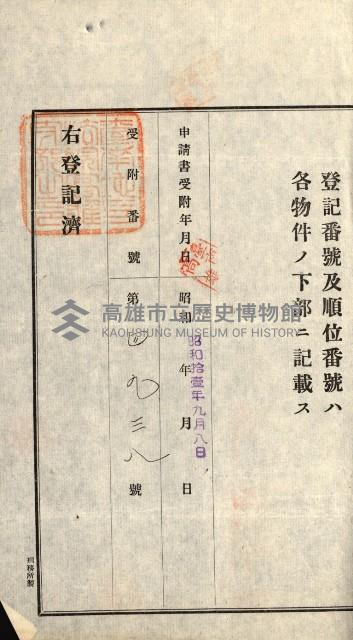 登記番號及順位番號ハ
各物件ノ下部ニ記載ス
申請書受附年月日
昭和 年 月 日
昭和拾壹年九月八日
受附番號
第四九三八號
右登記濟
高雄市立歷史博物館
KAOHSIUNG MUSEUM OF HISTORY
刑務所製